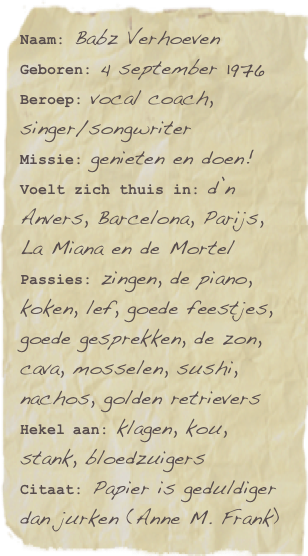 Naam: Babz Verhoeven
Geboren: 4 september 1976
Beroep: vocal coach,
singer/songwriter
Missie: genieten en doen!
Voelt zich thuis in: d'n
Anvers, Barcelona, Parijs,
La Miana en de Mortel
Passies: zingen, de piano,
koken, lef, goede feestjes,
goede gesprekken, de zon,
cava, mosselen, sushi,
nachos, golden retrievers
Hekel aan: klagen, kou,
stank, bloedzuigers
Citaat: Papier is geduldiger
dan jurken (Anne M. Frank)